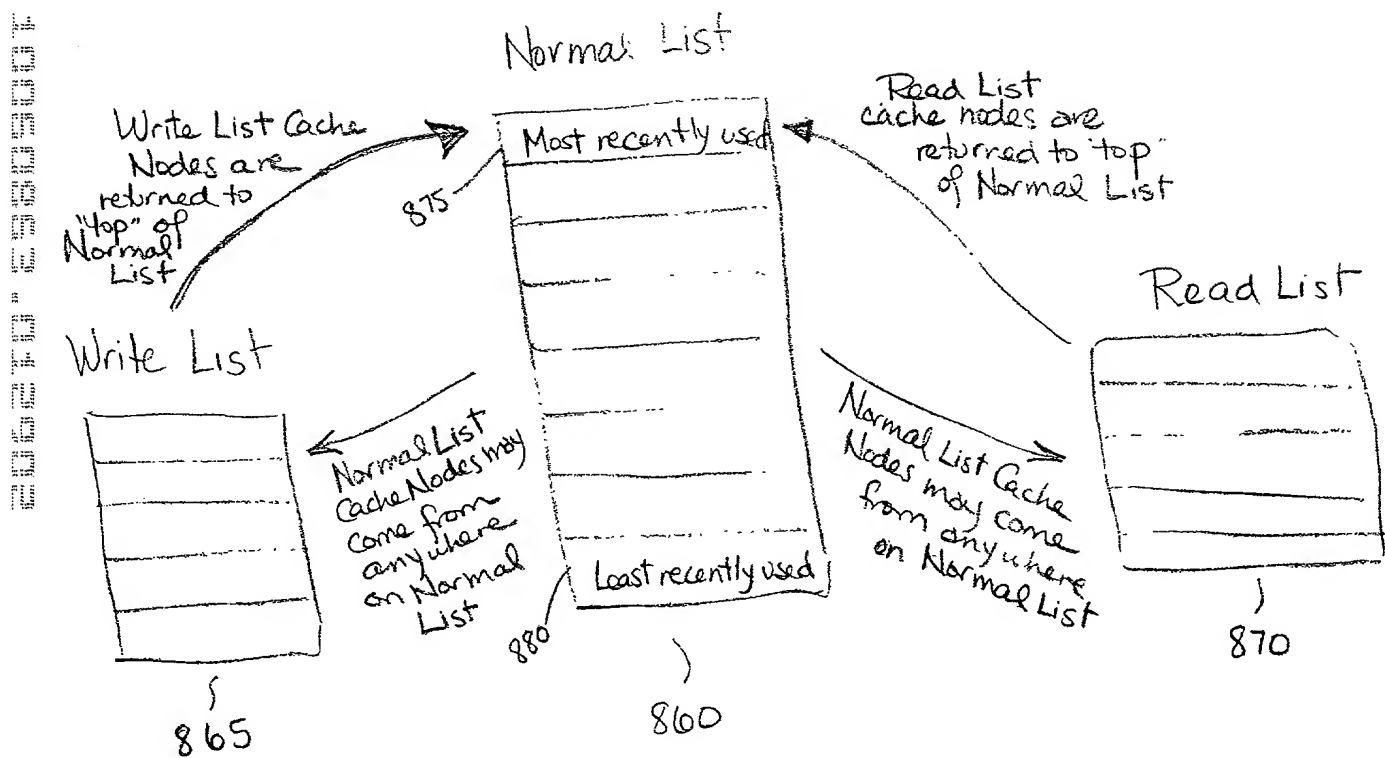 Normal List
Write List Cache
Nodes are
returned to
"top" of
Normal
List
Most recently used
875
Read List
cache nodes are
returned to "top"
of Normal List
Write List
Read List
Normal List
Cache Nodes may
come from
anywhere
on Normal
List
Normal List Cache
Nodes may come
from anywhere
on Normal List
Least recently used
880
865
860
870